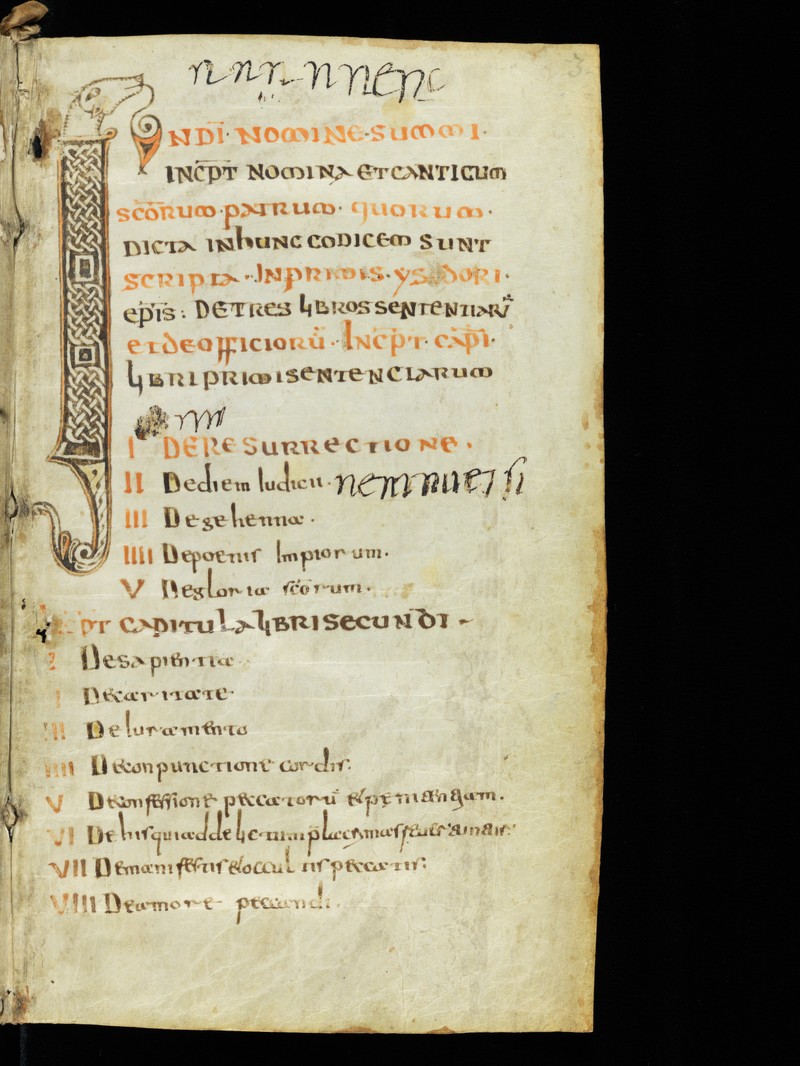 IN DĪ NOMINE SUMMI·
INCP̄T NOMINA ET CANTICUM
SCŌRUM·PATRUM·QUORUM·
DICTA IN HUNC CODICEM SUNT
SCRIPTA·INPRIMIS·YSIDORI·
EP̄IS: DE TRES LIBROS SENTENTIARŪ
ET DE OFFICIORŪ·INCP̄T·CAPĪ·
LIBRI PRIMI SENTENCIARUM
I DE RESURRECTIONE·
II De diem Iudicii·
III De gehennae·
IIII De poenis Impiorum·
V De gloria scōrum·
PT CAPITULA LIBRI SECUNDI
I De sapientia
I De caritate
III De Iuramento
IIII De conpunctione cordis:
V De confessione peccatorū et penitentiam·
VI De his qui ad
VII De manifestis et occultis peccatis:
VIII De amore peccandi·